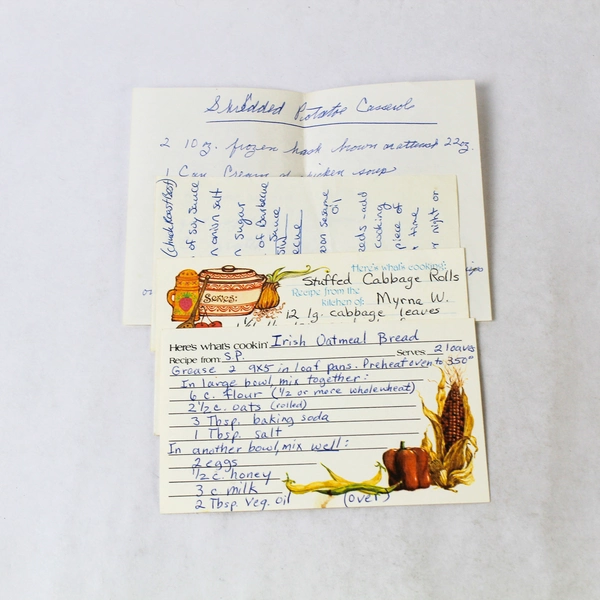 Shredded Potatoe Casserole
2 10 oz. frozen hash brown or at least 22 oz.
1 Can Cream of chicken soup
(chuck Roast Beef)
of Soy Sauce
onion salt
sugar
of Barbecue
Sauce
sesame
oil
add
cooking
piece of
time
night or
Here's what's cooking:
Stuffed Cabbage Rolls
Recipe from the
kitchen of: Myrna W.
Serves:
12 lg. cabbage leaves
Here's what's cookin' Irish Oatmeal Bread
Recipe from: S.P. Serves 2 loaves
Grease 2 9x5 in loaf pans. Preheat oven to 350°
In large bowl, mix together:
6 c. flour (1/2 or more wholewheat)
2 1/2 c. oats (rolled)
3 Tbsp. baking soda
1 Tbsp. salt
In another bowl, mix well:
2 eggs
1/2 c. honey
3 c milk
2 Tbsp Veg. Oil (over)